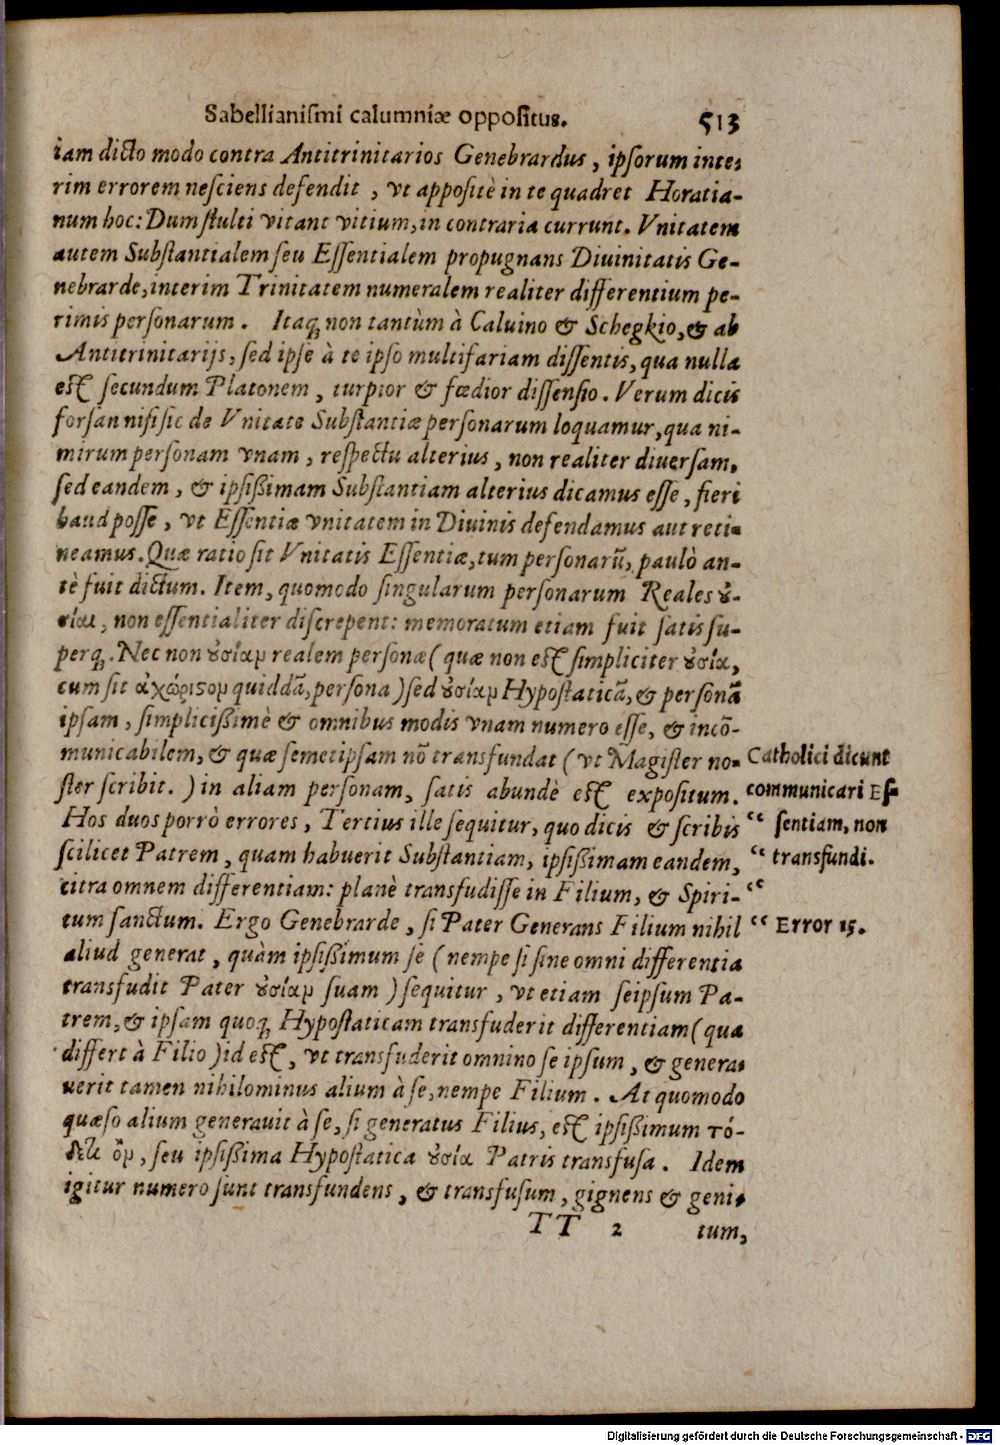 Sabellianiſmi calumniæ oppoſitus. 513
iam dicto modo contra Antitrinitarios Genebrardus, ipſorum inte-
rim errorem neſciens defendit, vt appoſitè in te quadret Horatia-
num hoc: Dum ſtulti vitant vitium, in contraria currunt. Vnitatem
autem Subſtantialem ſeu Eſſentialem propugnans Diuinitatis Ge-
nebrarde, interim Trinitatem numeralem realiter differentium pe-
rimis perſonarum. Itaq́ non tantùm à Caluino & Schegkio, & ab
Antitrinitarijs, ſed ipſe à te ipſo multifariam diſſentis, qua nulla
eſt ſecundum Platonem, turpior & fœdior diſſenſio. Verum dicis
forſan niſi ſic de Vnitate Subſtantiæ perſonarum loquamur, qua ni-
mirum perſonam vnam, reſpectu alterius, non realiter diuerſam,
ſed eandem, & ipſißimam Subſtantiam alterius dicamus eſſe, fieri
haud poſſe, vt Eſſentiæ vnitatem in Diuinis defendamus aut reti-
neamus. Quæ ratio ſit Vnitatis Eſſentiæ, tum perſonarũ, paulò an-
tè fuit dictum. Item, quomodo ſingularum perſonarum Reales ȣ̓-
σίαι, non eſſentialiter diſcrepent: memoratum etiam fuit ſatis ſu-
perq́. Nec non ȣ̓σίαμ realem perſonæ (quæ non eſt ſimpliciter ȣ̓σία,
cum ſit ἀχώριϛομ quiddã, perſona) ſed ȣ̓σίαμ Hypoſtaticã, & perſonã
ipſam, ſimplicißimè & omnibus modis vnam numero eſſe, & incõ-
municabilem, & quæ ſemetipſam nõ transfundat (vt Magiſter no-
ſter ſcribit.) in aliam perſonam, ſatis abundè eſt expoſitum.
Catholici dicunt
communicari Eſ-
ſentiam, non
transfundi.
Hos duos porrò errores, Tertius ille ſequitur, quo dicis & ſcribis “
ſcilicet Patrem, quam habuerit Subſtantiam, ipſißimam eandem, “
citra omnem differentiam: planè transfudiſſe in Filium, & Spiri- “
tum ſanctum. Ergo Genebrarde, ſi Pater Generans Filium nihil “ Error 15.
aliud generat, quàm ipſißimum ſe (nempe ſi ſine omni differentia
transfudit Pater ȣ̓σίαμ ſuam) ſequitur, vt etiam ſeipſum Pa-
trem, & ipſam quoq́ Hypoſtaticam transfuderit differentiam (qua
differt à Filio) id eſt, vt transfuderit omnino ſe ipſum, & genera-
uerit tamen nihilominus alium à ſe, nempe Filium. At quomodo
quæſo alium generauit à ſe, ſi generatus Filius, eſt ipſißimum τό-
δε ὂμ, ſeu ipſißima Hypoſtatica ȣ̓σία Patris transfuſa. Idem
igitur numero ſunt transfundens, & transfuſum, gignens & geni-
TT 2 tum,
Digitalisierung gefördert durch die Deutsche Forschungsgemeinschaft - DFG